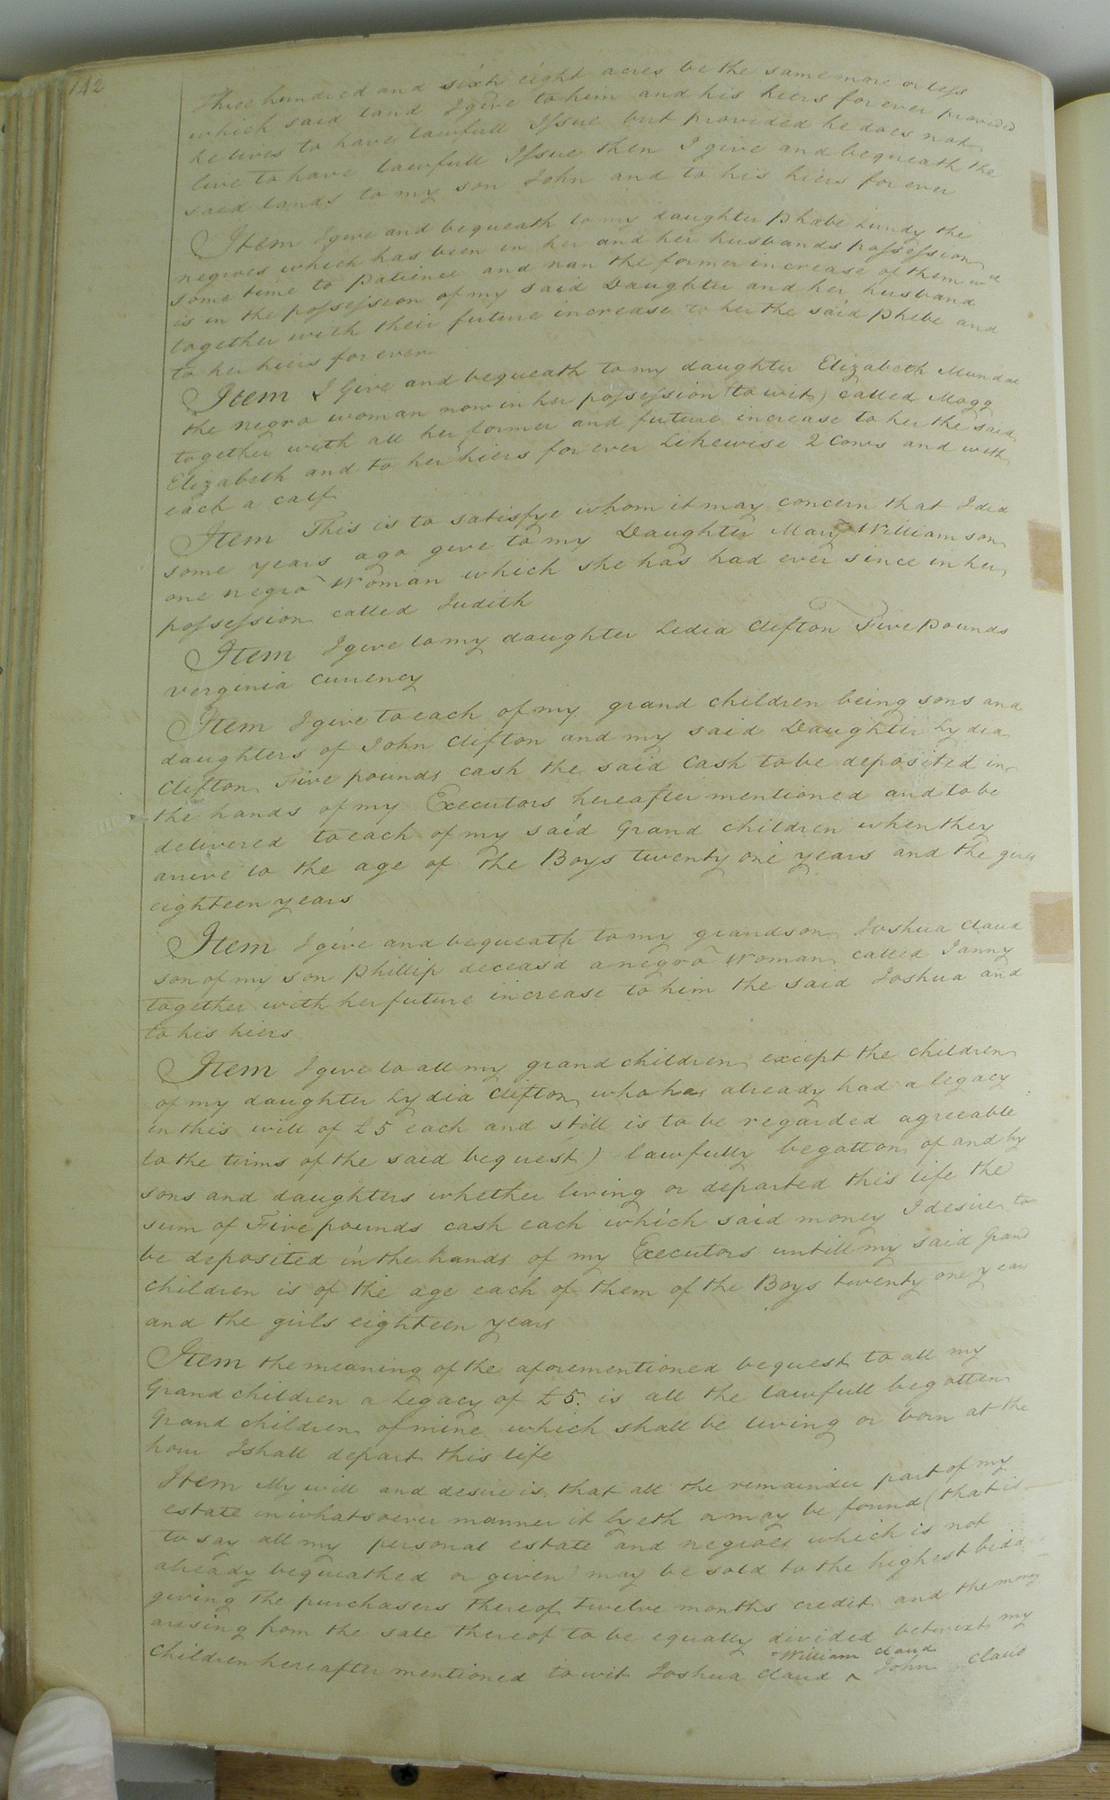 142
Three hundred and sixty eight acres be the same more or less
which said land I give to him and his heirs for ever provided
he lives to have lawfull Issue but provided he does not
live to have lawfull Issue then I give and bequeath the
said lands to my son John and to his hiers for ever
Item I give and bequeath to my daughter Phebe Lundy the
negroes which has been in her and her husbands possession
some time to Patience and nan the former increase of them
is in the possession of my said Daughter and her husband
together with their future increase to her the said Phebe and
to her hiers for ever
Item I Give and bequeath to my daughter Elizabeth Mundae
the negro woman now in her possession (to wit) called Mogg
together with all her former and future increase to her the said
Elizabeth and to her hiers for ever Likewise 2 Cows and with
each a calf
Item This is to satisfye whom it may concern that I did
some years ago geve to my Daughter Mary Williamson
one negro Woman which she has had ever since in her
possession called Judith
Item I give to my daughter Lidia Clifton Five pounds
verginia Currency
Item I give to each of my grand children being sons and
daughters of John Clifton and my said Daughter Lydia
Clifton Five pounds cash the said Cash to be deposited in
the hands of my Executors hereafter mentioned and to be
delivered to each of my said Grand children when they
arive to the age of the Boys twenty one years and the girls
eighteen years
Item I give and bequeath to my grandson Joshua Claud
son of my son Phillip deceasd a negro Woman called Janny
together with her future increase to him the said Joshua and
to his hiers
Item I give to all my grand children except the children
of my daughter Lydia Clifton who has already had a legacy
in this will of £5 each and still is to be regarded agreeable
to the terms of the said bequest) lawfully begotton of and by
sons and daughters whether living or departed this life the
sum of Five pounds cash each which said money I desire to
be deposited in the hands of my Executors untill my said Grand
children is of the age each of them of the Boys twenty one years
and the girls eighteen years
Item the meaning of the aforementioned bequest to all my
Grand children a Legacy of £5. is all the lawfull begotten
Grand children of mine which shall be living or born at the
hour I shall depart this life
Item My will and desire is that all the remainder part of my
estate in whatsoever manner it lyeth or may be found (that is
to say all my personal estate and negroes which is not
already bequeathed or given) may be sold to the highest bidd
giving the purchasers thereof twelve months credit and the money
arising from the sale thereof to be equally divided betwixt my
William Claud
Children hereafter mentioned to wit Joshua Claud ^ John Claud